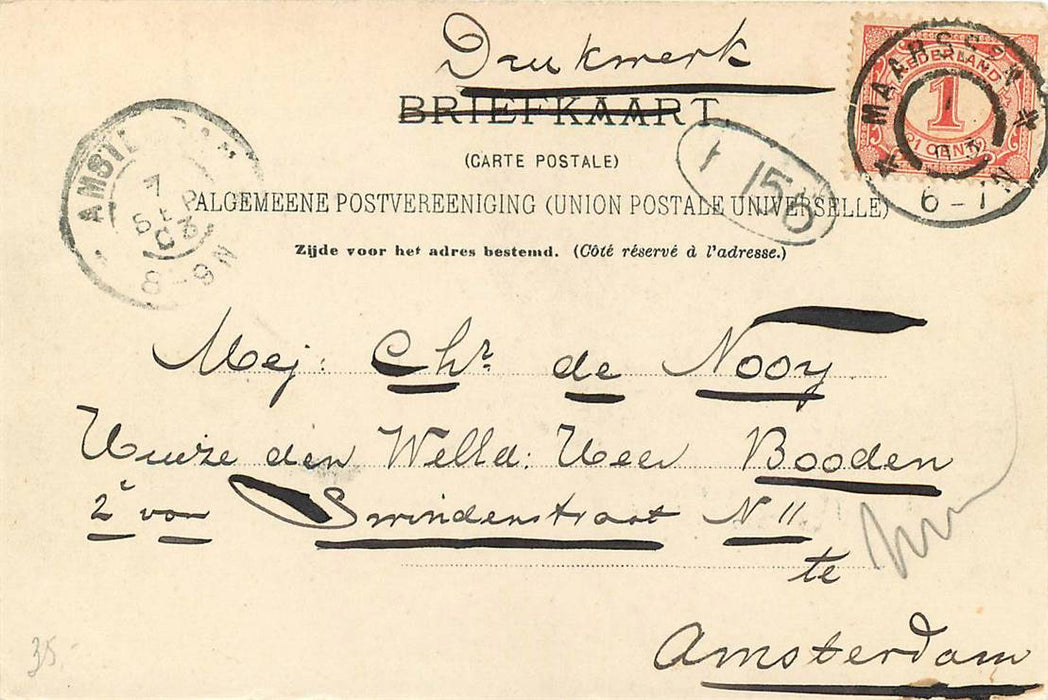 Drukwerk
BRIEFKAART.
(CARTE POSTALE)
ALGEMEENE POSTVEREENIGING (UNION POSTALE UNIVERSELLE)
Zijde voor het adres bestemd. (Côté réservé à l'adresse.)
MAARSSEN
6-7N
NEDERLAND
1
CENT
156
AMSTERDAM
7
SEP
03
8-9N
Mej: Chr. de Nooy
Huize den Weled: Heer Booden
2e van Swindenstraat N 11
te
Amsterdam
35.-